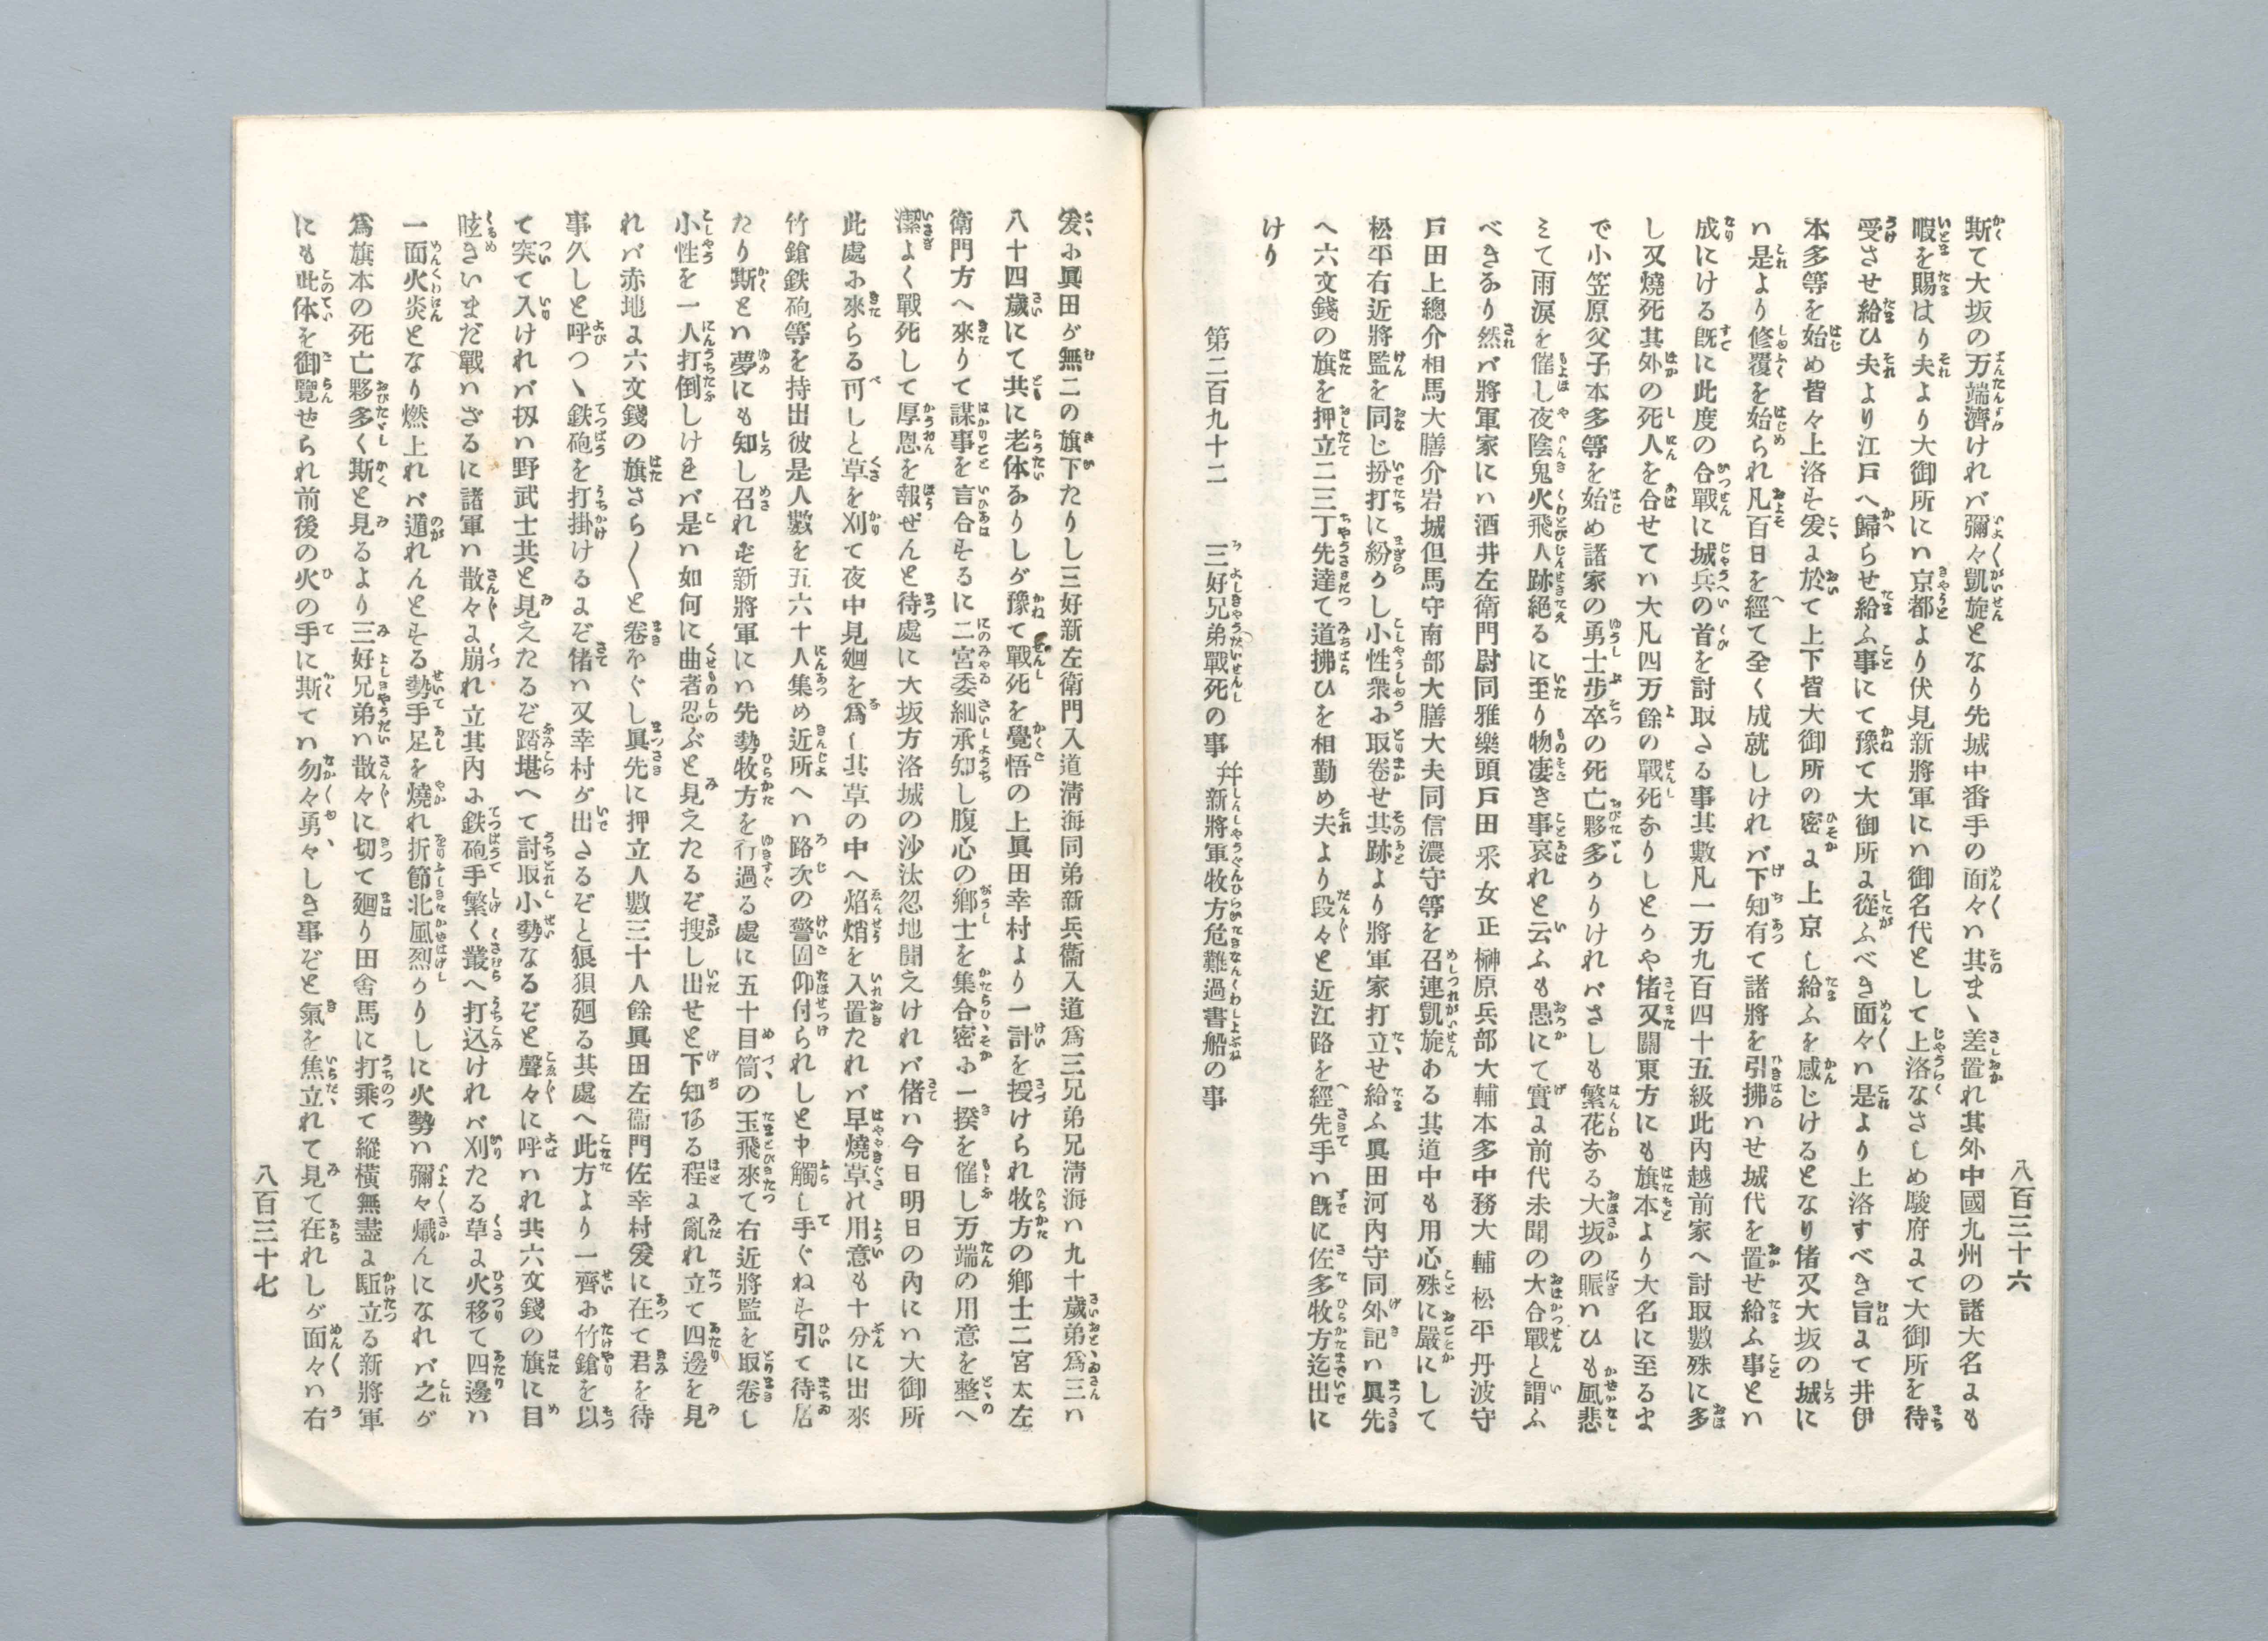 八百三十六
斯て大坂の万端濟けれバ彌々凱旋となり先城中番手の面々ハ其まゝ差置れ其外中國九州の諸大名にも
暇を賜はり夫より大御所にハ京都より伏見新將軍にハ御名代として上洛なさしめ駿府にて大御所を待
受させ給ひ夫より江戸へ歸らせ給ふ事にて豫て大御所に從ふべき面々ハ是より上洛すべき旨にて井伊
本多等を始め皆々上洛そ爰に於て上下皆大御所の密に上京し給ふを感じけるとなり偖又大坂の城に
ハ是より修覆を始られ凡百日を經て全く成就しけれバ下知有て諸將を引拂ハせ城代を置せ給ふ事とハ
成にける既に此度の合戰に城兵の首を討取さる事其數凡一万九百四十五級此内越前家へ討取數殊に多
し又燒死其外の死人を合せてハ大凡四万餘の戰死なりしとかや偖又關東方にも旗本より大名に至るま
で小笠原父子本多等を始め諸家の勇士歩卒の死亡夥多かりけれバさしも繁花なる大坂の賑ハひも風悲
ミて雨涙を催し夜陰鬼火飛人跡絶るに至り物凄き事哀れと云ふも愚にて實に前代未聞の大合戰と謂ふ
べきなり然バ將軍家にハ酒井左衛門尉同雅樂頭戸田釆女正榊原兵部大輔本多中務大輔松平丹波守
戸田上總介相馬大膳介岩城但馬守南部大膳大夫同信濃守等を召連凱旋ある其道中も用心殊に嚴にして
松平右近將監を同じ扮打に紛かし小性衆お取卷せ其跡より將軍家打立せ給ふ眞田河内守同外記ハ眞先
へ六文錢の旗を押立二三丁先達て道拂ひを相勤め夫より段々と近江路を經先手ハ既に佐多牧方迄出に
けり
第二百九十二　三好兄弟戰死の事 并新將軍牧方危難過書船の事
爰お眞田が無二の旗下たりし三好新左衛門入道淸海同弟新兵衞入道爲三兄弟兄淸海ハ九十歲弟爲三ハ
八十四歲にて共に老体なりしが豫て戰死を覺悟の上眞田幸村より一計を授けられ牧方の鄕士二宮太左
衛門方へ來りて謀事を言合そるに二宮委細承知し腹心の鄕士を集合密お一揆を催し万端の用意を整へ
潔よく戰死して厚恩を報ぜんと待處に大坂方洛城の沙汰忍地聞えけれバ偖ハ今日明日の內にハ大御所
此處お來らる可しと草を刈て夜中見廻を爲し其草の中へ焰焇を入置たれバ早燒草の用意も十分に出來
竹鎗鉄砲等を持出彼是人數を五六十人集め近所へハ路次の警固仰付られしと申觸し手ぐねそ引て待居
たり斯とハ夢にも知し召れず新將軍にハ先勢牧方を行過る處に五十目筒の玉飛來て右近將監を取卷し
小性を一人打倒しけれバ是ハ如何に曲者忍ぶと見えたるぞ搜し出せと下知ある程に亂れ立て四邊を見
れバ赤地に六文錢の旗さら〱と卷をぐし眞先に押立人數三十人餘眞田左衞門佐幸村爰に在て君を待
事久しと呼つゝ鉄砲を打掛けるにぞ偖ハ又幸村が出さるぞと狼狽廻る其處へ此方より一齊お竹鎗を以
て突て入けれバ扨ハ野武士共と見えたるぞ踏堪へて討取小勢なるぞと聲々に呼ハれ共六文錢の旗に目
眩きいまだ戰ハざるに諸軍ハ散々に崩れ立其內お鉄砲手繁く叢へ打込けれバ刈たる草に火移て四邊ハ
一面火炎となり燃上れバ遁れんとそる勢手足を燒れ折節北風烈かりしに火勢ハ彌々熾んになれバ之が
爲旗本の死亡夥多く斯と見るより三好兄弟ハ散々に切て廻り田舍馬に打乘て縱橫無盡に駈立る新將軍
にも此体を御覽せられ前後の火の手に斯てハ勿々勇々しき事ぞと氣を焦立れて見て在れしが面々ハ右
八百三十七